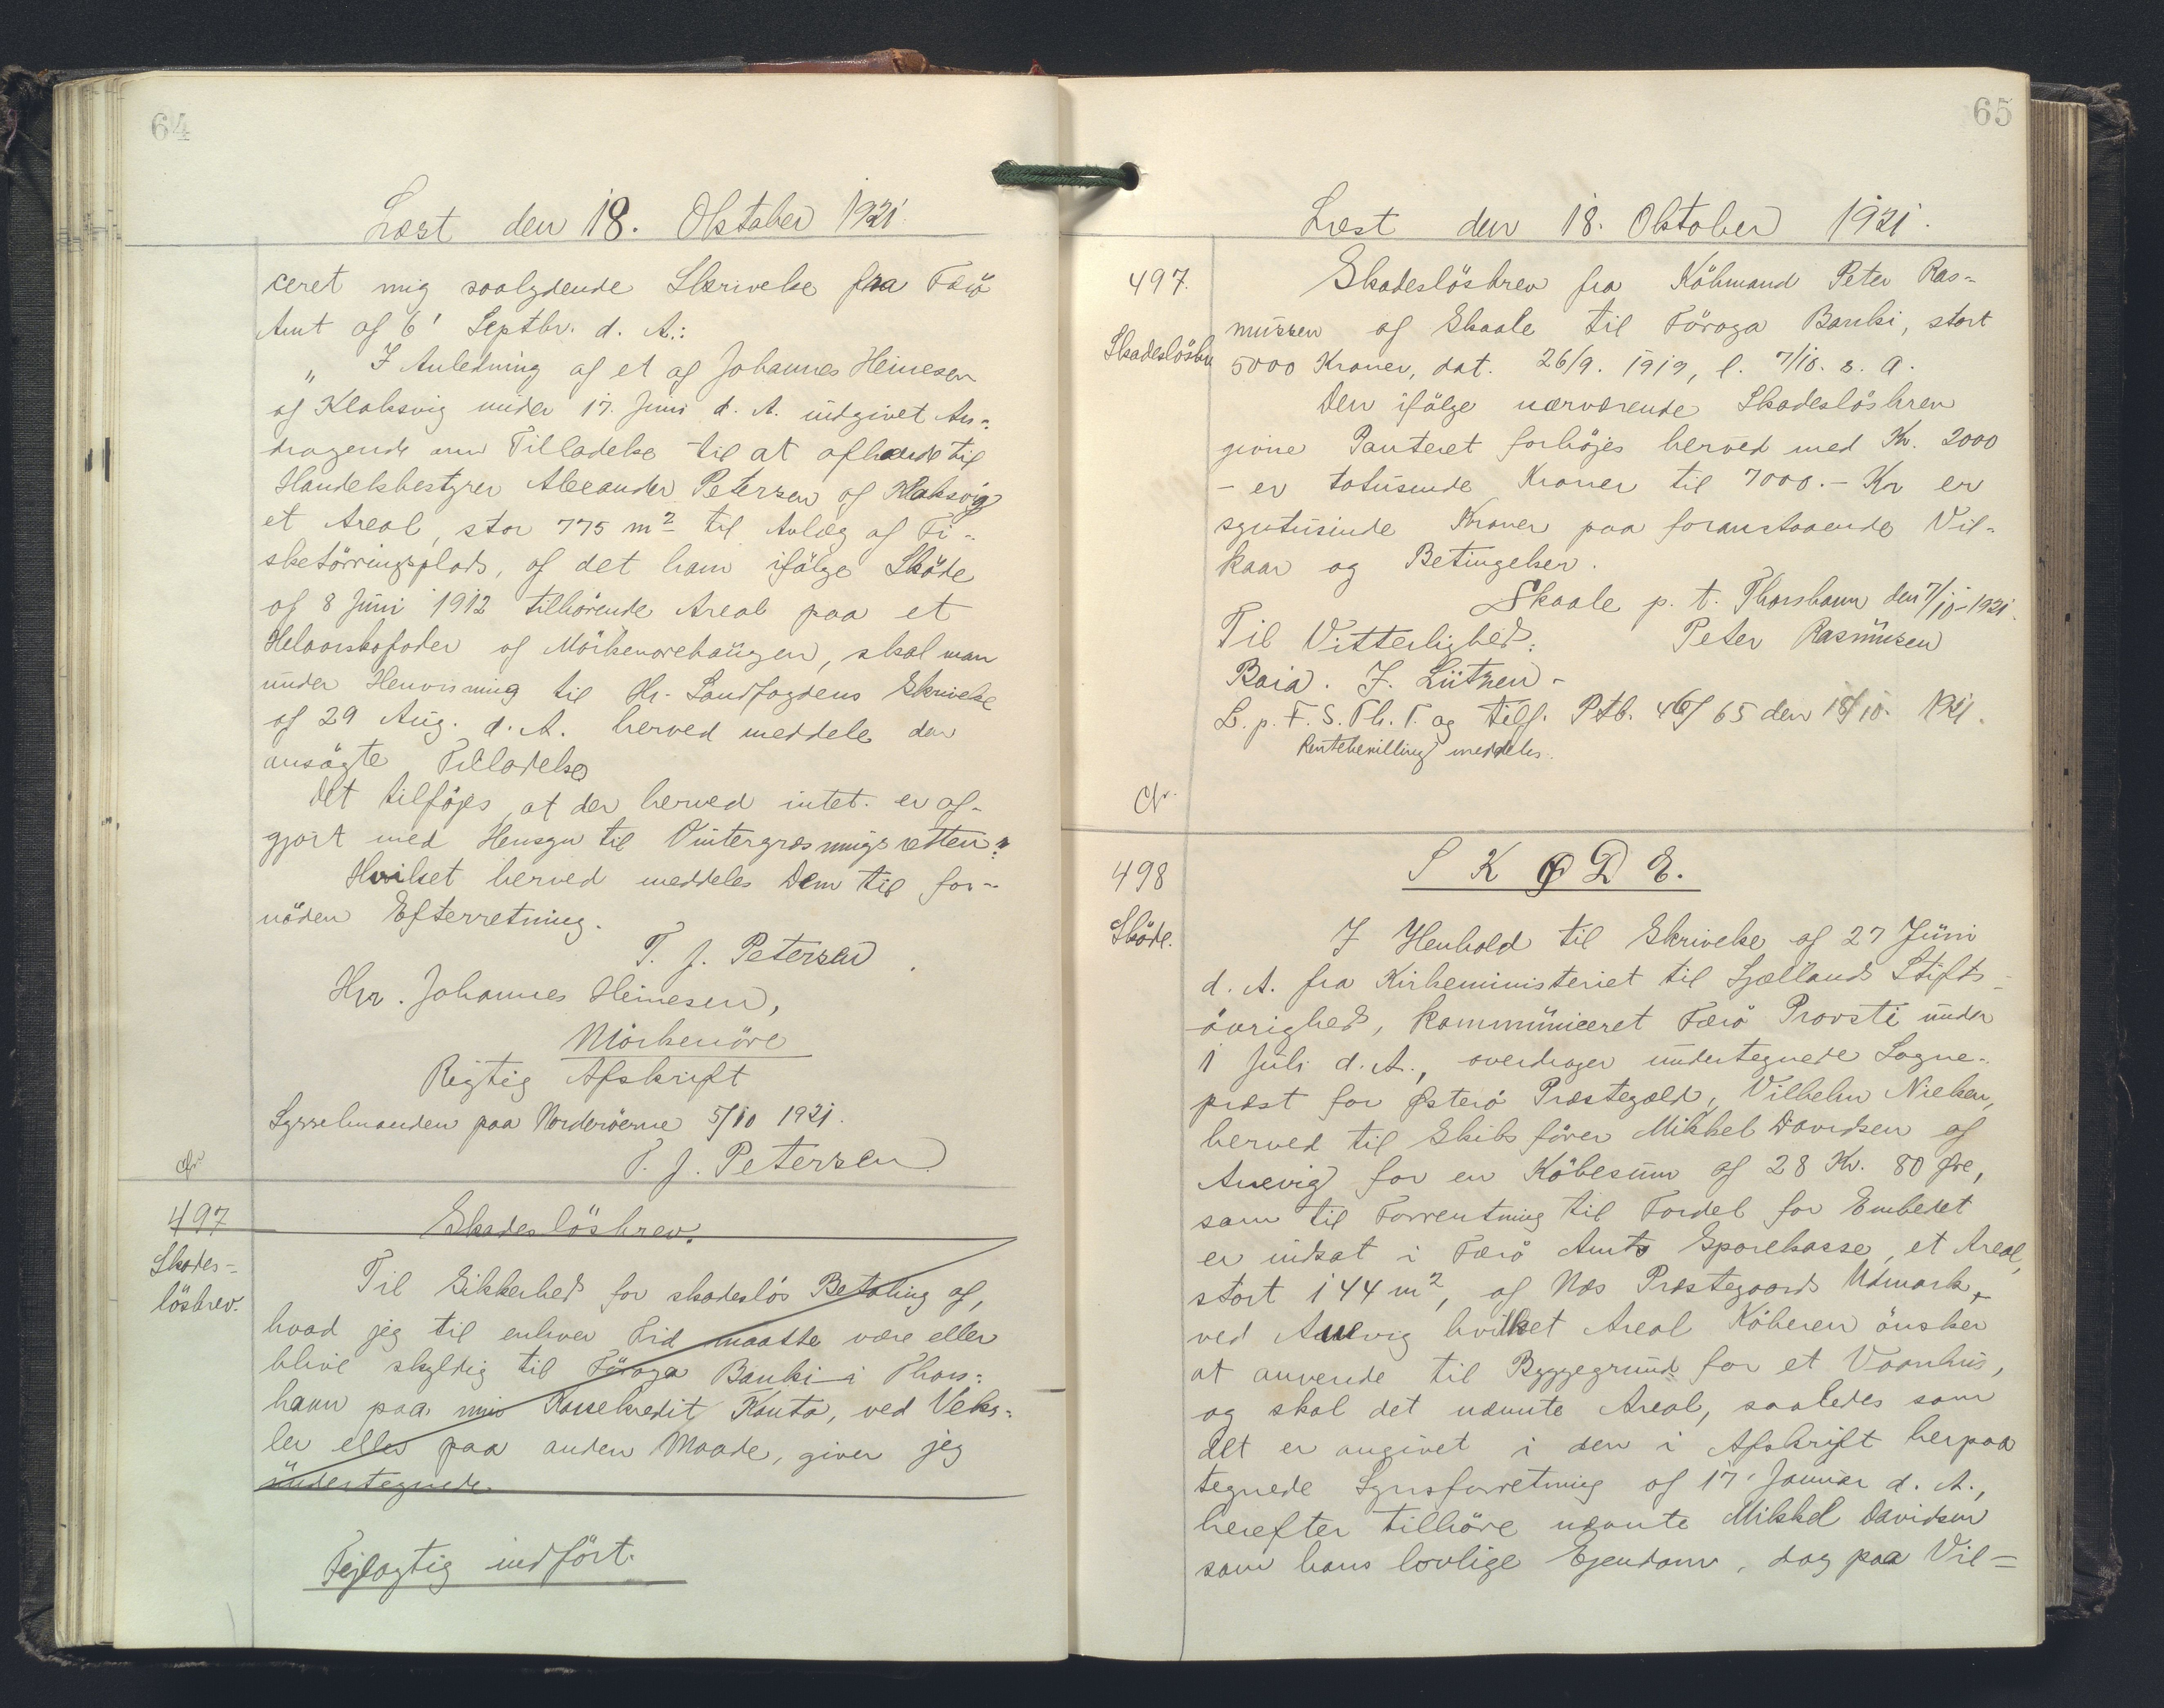 64
Læst den 18. Oktober 1921.
ceret mig saalydende Skrivelse fra Færö
Amt af 6' Septbr. d. A.:
„ I Anledning af et af Johannes Heinesen
af Klaksvig under 17. Juni d. A. indgivet An-
dragende om Tilladelse til at afhænde til
Handelsbestyrer Alexander Petersen af Klaksvig
et Areal, stor 775 m² til Anlæg af Fi-
sketörringsplads, af det ham ifölge Sköde
af 8 Juni 1912 tilhörende Areal paa et
Helaarskofoder af Mörkenörehaugen, skal man
under Henvisning til Hr. Landfogdens Skrivelse
af 29 Aug. d. A. herved meddele den
ansögte Tilladelse
Det tilföjes, at der herved intet er af-
gjort med Hensyn til Vintergræsningsretten."
Hvilket herved meddeles Dem til for-
nöden Efterretning.
T. J. Petersen.
Hr. Johannes Heinesen,
Mörkenöre
Rigtig Afskrift
Sysselmanden paa Norderöerne 5/10 1921.
T. J. Petersen
497
Skades-
lösbrev.
Skadeslösbrev.
Til Sikkerhed for skadeslös Betaling af,
hvad jeg til enhver Tid maatte være eller
blive skyldig til Föroya Banki i Thors-
havn paa min Kassekredit Konto, ved Veks-
ler eller paa anden Maade, giver jeg
undertegnede
Fejlagtig indfört.
65
Læst den 18. Oktober 1921.
497.
Skadeslösbr
Skadeslösbrev fra Köbmand Peter Ras-
mussen af Skaale til Föroya Banki, stort
5000 Kroner, dat. 26/9. 1919, l. 7/10. s. A.
Den ifölge nærværende Skadeslösbrev
givne Panteret forhöjes herved med Kr. 2000
- er totusinde Kroner til 7000.- Kr er
syvtusinde Kroner paa foranstaaende Vil-
kaar og Betingelser.
Skaale p. t. Thorshavn den 7/10-1921.
Til Vitterlighed: Peter Rasmussen
Baia. J. Lützen -
L. p. F. S. Th. T. og tilf. Ptb. 46/65 den 18/10. 1921.
Rentebevilling meddeles.
498
Sköde.
SKØDE.
I Henhold til Skrivelse af 27 Juni
d. A. fra Kirkeministeriet til Sjællands Stifts-
övrighed, kommuniceret Færö Provsti under
1 Juli d. A., overdrager undertegnede Sogne-
præst for Østerö Præstegæld, Vilhelm Nielsen,
herved til Skibsförer Mikkel Davidsen af
Anevig for en Köbesum af 28 Kr. 80 Øre,
som til Forrentning til Fordel for Embedet
er indsat i Færö Amts Sparekasse, et Areal,
stort 144 m², af Næs Præstegaards Udmark,
ved Anevig hvilket Areal Köberen önsker
at anvende til Byggegrund for et Vaanhus,
og skal det nævnte Areal, saaledes som
det er angivet i den i Afskrift herpaa
tegnede Synsforretning af 17' Januar d. A.,
herefter tilhöre nævnte Mikkel Davidsen
som hans lovlige Ejendom, dog paa Vil=